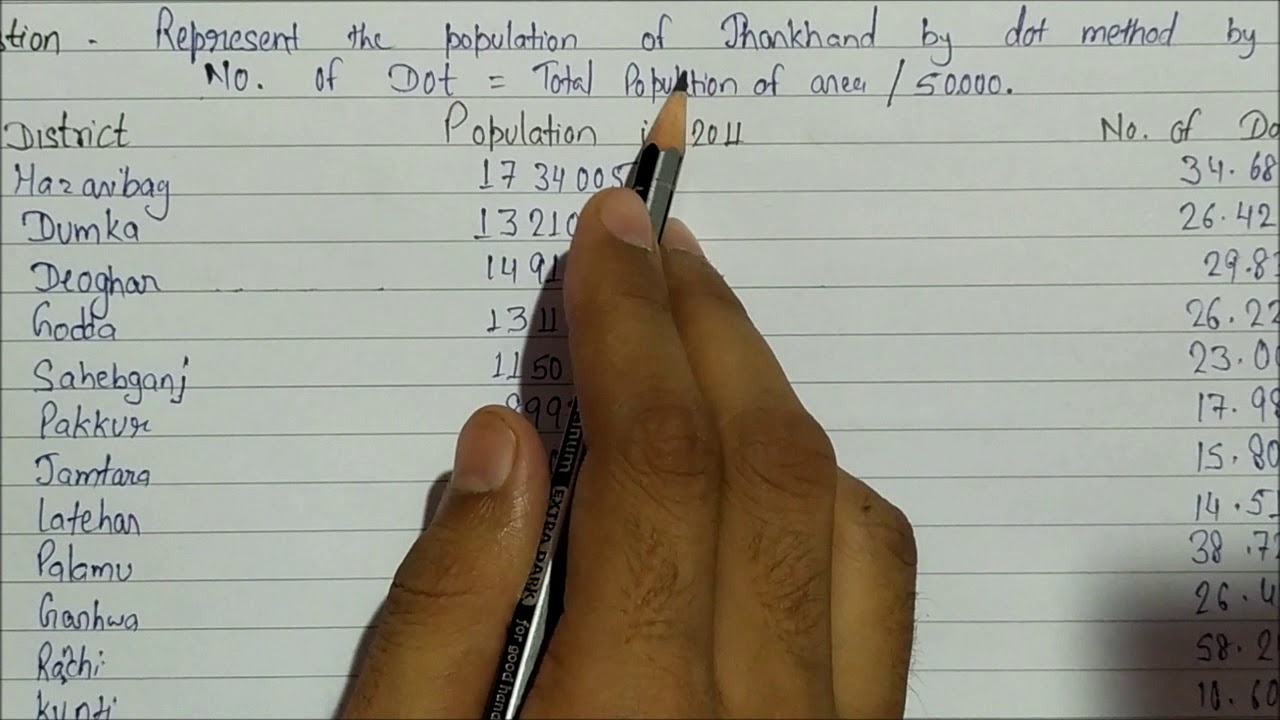 stion - Represent the population of Jharkhand by dot method by
No. of Dot = Total Population of area / 50000.
District Population in 2011 No. of Do
Hazaribag 1734005 34.68
Dumka 13210 26.42
Deoghar 1491 29.8
Godda 1311 26.22
Sahebganj 1150 23.0
Pakkur 899 17.98
Jamtara 15.80
Latehar 14.5
Palamu 38.7
Garhwa 26.4
Rachi 58.2
Kunti 10.60
alnum EXTRA DARK for good hand